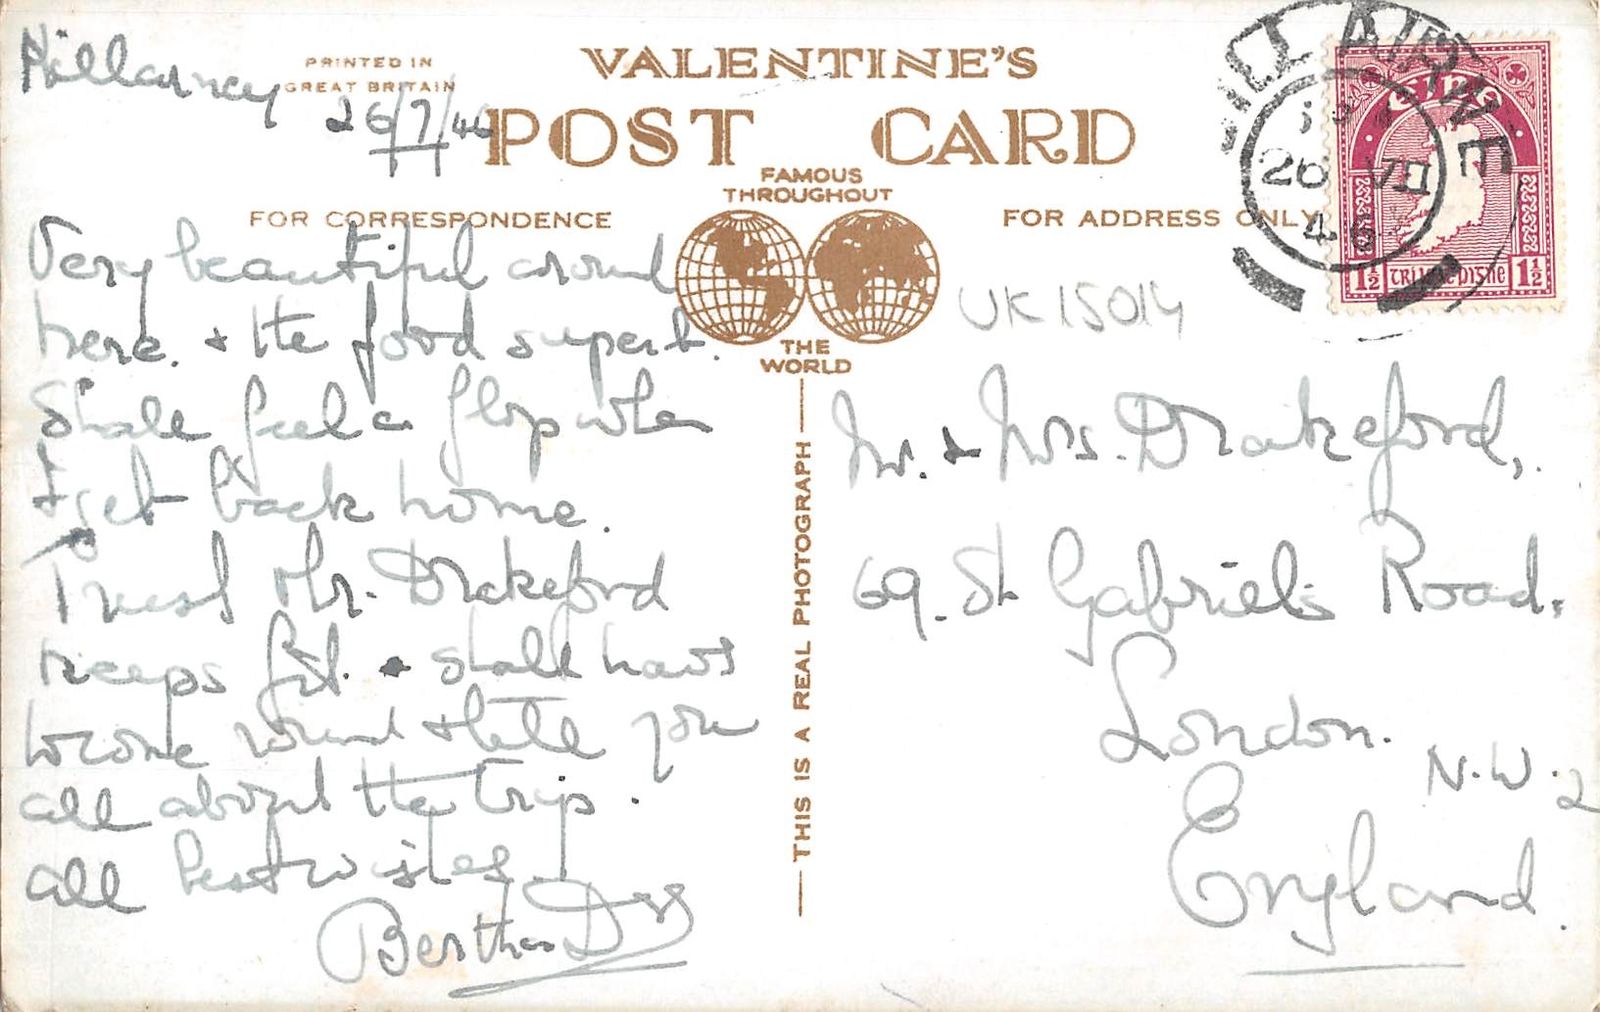 Killarney
26/7/46
PRINTED IN
GREAT BRITAIN
VALENTINE'S
POST CARD
FAMOUS
THROUGHOUT
THE
WORLD
FOR CORRESPONDENCE
FOR ADDRESS ONLY
Very beautiful around
here. & the food superb.
Shall feel a flop when
I get back home.
Trust Mr. Drakeford
keeps fit. & shall have
to come round & tell you
all about the trip.
All best wishes
Bertha
THIS IS A REAL PHOTOGRAPH
UK15014
Mr. & Mrs. Drakeford,
69. St Gabriel's Road,
London.
N.W.2
England.
CILL AIRNE
26 VII
46
éire
1½ 1½